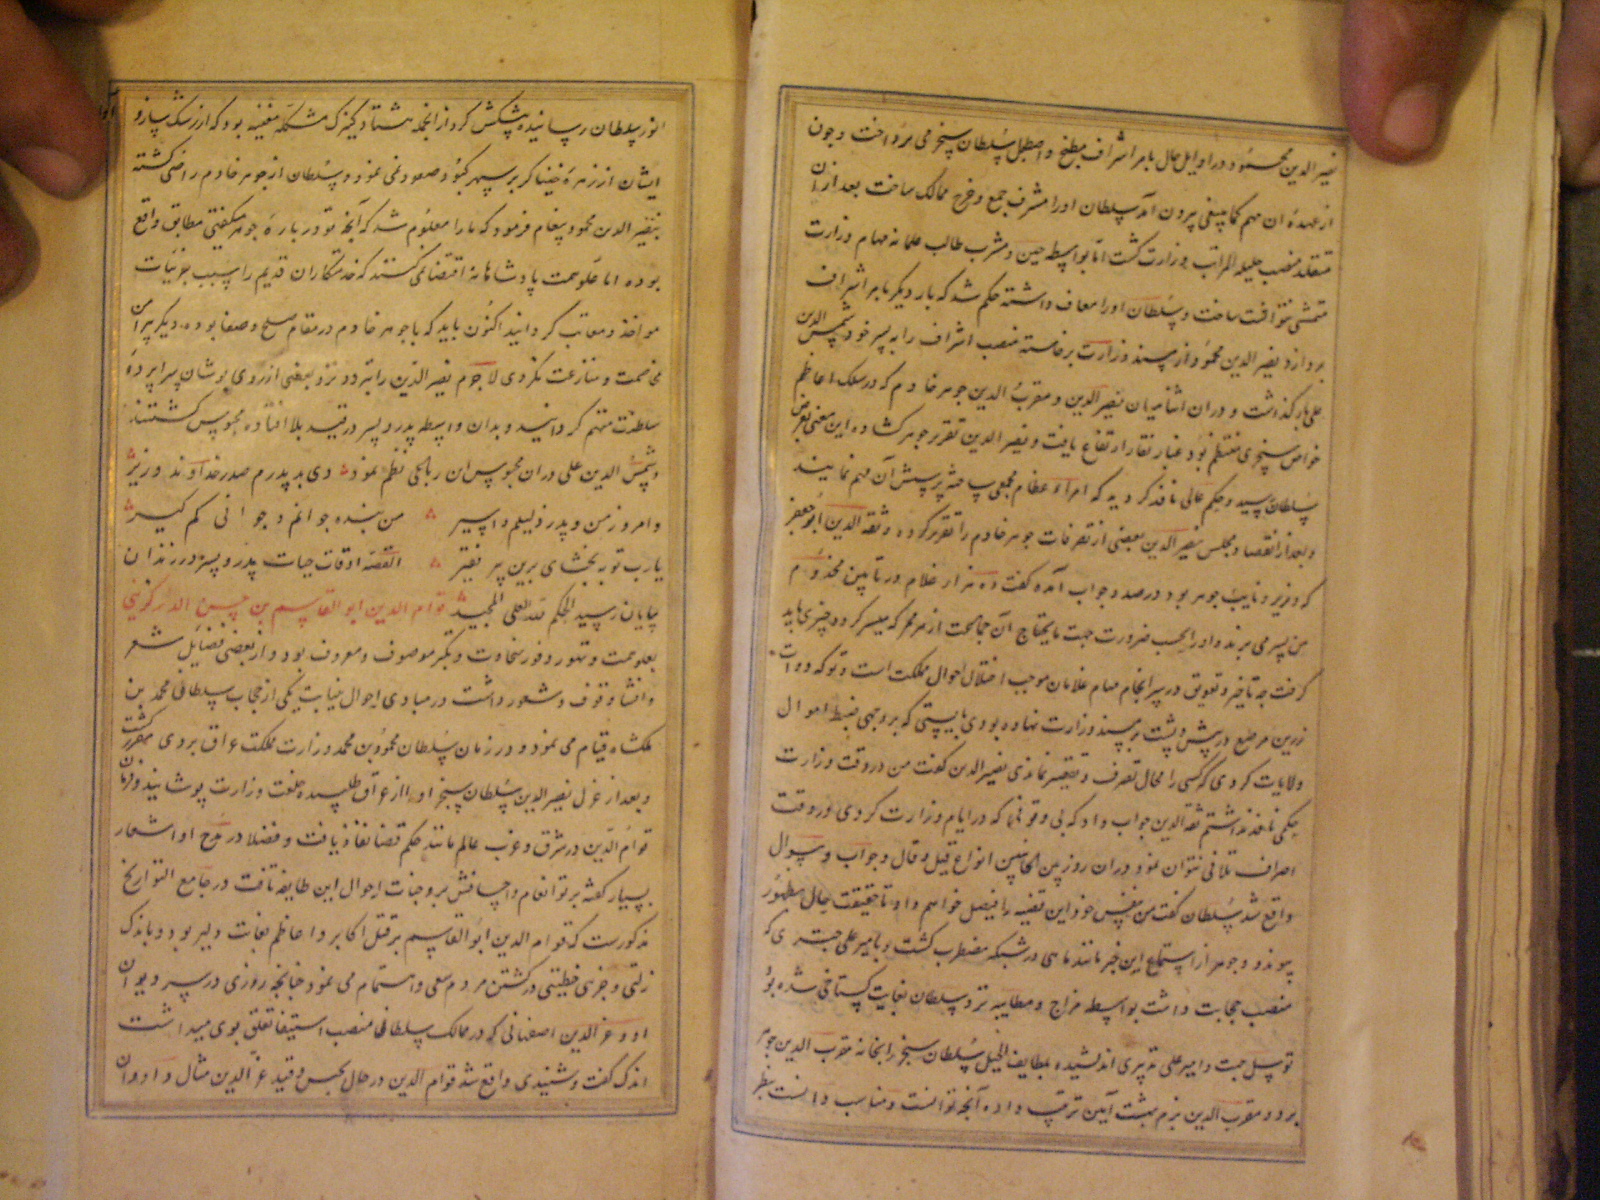 نصیر الدین محمود در اوایل حال بامر اشراف مطبخ و اصطبل سلطان سنجر می پرداخت و چون
از عهدهٔ ان مهم کما ینبغی بیرون آمد سلطان اورا مشرف جمع و خرج ممالک ساخت بعد ازان
متقلد منصب جلیله المراتب وزارت گشت امّا بواسطه جبن و مشرب طالب علمانه مهام وزارت
متمشی نتوانست ساخت و سلطان اورا معاف داشته حکم شد که بار دیگر بامر اشراف
پردازد نصیر الدین محمود از مسند وزارت برخاسته منصب اشراف را به پسر خود شمس الدین
علی باز گذاشت و دران اثنا میان نصیر الدین و مقرب الدین جوهر خادم که در سلک اعاظم
خواص سنجری منتظم بود غبار نقار ارتفاع یافت و نصیر الدین تقریر جوهر کشاده این معنی بعرض
سلطان رسید و حکم عالی نافذ گردید که امراء عظام مجمعی ساخته پرسش آن مهم نمایند
و بعد از انعقاد مجلس نصیر الدین بعضی از تصرفات جوهر خادم را تقریر کرده و ثقه الدین ابو جعفر
که وزیر و نایب جوهر بود در صدد جواب آمده گفت ده هزار غلام در تابین مخدوم
من بسر می برند و اورا بحسب ضرورت جهت مایحتاج آن جماعت از هر ممر که میسر گردد چیزی باید
گرفت چه تاخیر و تعویق در سرانجام مهام غلامان موجب اختلال احوال مملکت است و تو که دوات
زرین مرصع در پیش و پشت بر مسند وزارت نهاده بودی بایستی که بر وجهی ضبط اموال
ولایات کردی که کسی را مجال تصرف و تقصیر نماندی نصیر الدین گفت من در وقت وزارت
حکمی نافذ نداشتم ثقه الدین جواب داد که بی وقوفیها که در ایام وزارت کردی در وقت
اصراف تلافی نتوان نمود و دران روز بین الجانبین انواع قیل و قال و جواب و سوال
واقع شد سلطان گفت من بنفس خود این قضیه را فیصل خواهم داد تا حقیقت حال بظهور
پیوندد و جوهر از استماع این خبر مانند ماهی در شبکه مضطرب گشت و بامیر علی چتری که
منصب حجابت داشت بواسطه مزاح و مطایبه نزد سلطان بغایت گستاخ شده بود
توسل جست و امیر علی تدبیری اندیشیده بلطایف الحیل سلطان سنجر را بخانه مقرب الدین جوهر
برد و مقرب الدین بزم بهشت آیین ترتیب داده آنچه توانست و مناسب دانست بنظر
انور سلطان رسانیده پیشکش کرد از انجمله هشتاد کنیزک مشکله مغنیه بود که از رشک ساز و
ایشان از زهرهٔ خنیاگر بر سپهر کبود صعود نمی نمود و سلطان از جوهر خادم راضی گشته
بنصیر الدین محمود پیغام فرمود که ما را معلوم شد که آنچه تو در بارهٔ جوهر میگفتی مطابق واقع
بوده اما علو همت پادشاهانه اقتضا نمی کند که خدمتکاران قدیم را بسبب جزئیات
مواخذ و معاتب گردانیم اکنون باید که با جوهر خادم در مقام صلح و صفا بوده دیگر پیرامن
مخاصمت و منازعت نگردی لاجرم نصیر الدین را بتردد نزد بعضی از روی پوشان سراپردهٔ
سلطنت متهم گردانید و بدان واسطه پدر و پسر در قید بلا افتاده محبوس گشتند
و شمس الدین علی دران محبوس این رباعی نظم نمود دی بد پدرم صدر خداوند وزیر
و امروز من و پدر ذلیلیم و اسیر من بنده جوانم و جوانی کم گیر
یارب تو ببخشای برین پیر فقیر القصه اوقات حیات پدر و پسر در زندان
بپایان رسید الحکم لله العلی المجید قوام الدین ابو القاسم بن حسن الدرگزینی
بعلو همت و تهور و وفور سخاوت و تکبر موصوف و معروف بود و از بعضی فضایل شعر
و انشا وقوف و شعور داشت در مبادی احوال بنیابت یکی از حجاب سلطان محمد بن
ملکشاه قیام می نمود و در زمان سلطان محمود بن محمد وزارت مملکت عراق بر وی مقرر گشت
و بعد از عزل نصیر الدین سلطان سنجر اورا از عراق طلبیده خلعت وزارت پوشانید و فرمان
قوام الدین در شرق و غرب عالم مانند حکم قضا نفاذ یافت و فضلا در مدح او اشعار
بسیار گفته پرتو انعام و احسانش بر وجنات احوال این طایفه تافت در جامع التواریخ
مذکورست که قوام الدین ابو القاسم بر قتل اکابر و اعاظم بغایت دلیر بود و باندک
زلتی و جزئی خطیئتی در کشتن مردم سعی و اهتمام می نمود چنانچه روزی در سر دیوان
او و عز الدین اصفهانی که در ممالک سلطانی منصب استیفا تعلق بوی میداشت
اندک گفت و شنیدی واقع شد قوام الدین در حال بحبس و قید عز الدین مثال داد و ان